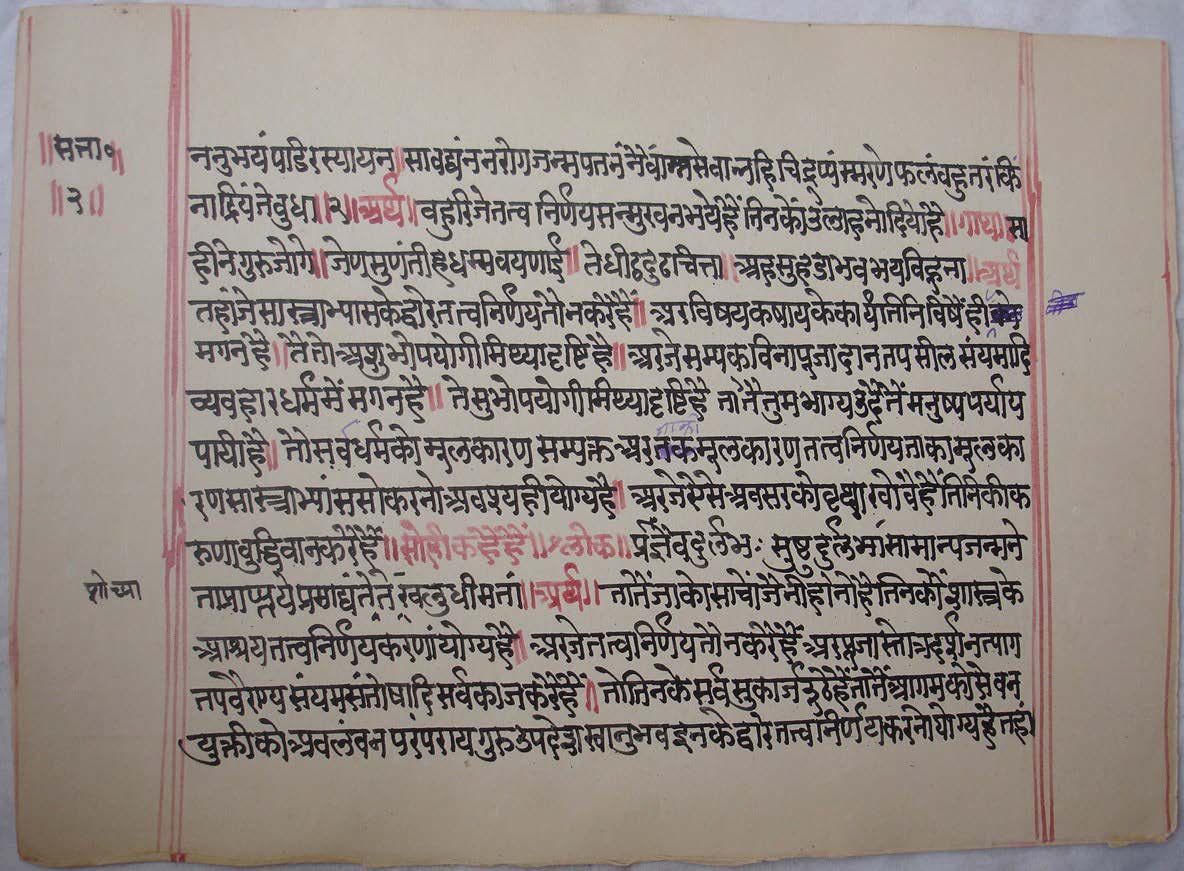 ॥सत्ता०॥
॥२॥
ननुभयं पीडिरस्यायन॥ सावद्यंननरोगजन्मपतनंनैवान्तसेवानहि चिद्रूप्पंम्मरणे फलंवहुतरं किं
नाद्रियंतेवुधा॥२॥ अर्थ॥ वहुरि जे तत्व निर्णय सन्मुख न भये हैं तिनकों उलाहनो दियो है॥ गाथा॥ सा
हीने गुरु जोगे॥ जे ण सुणंतीह धम्मवयणाई॥ ते धीट्ठदुट्ठचित्ता॥ अह सुहडा भवभयविहूना॥ अर्थ
तहां जे सास्त्राभ्यासके द्वारे तत्वनिर्णय तौ न करे हैं॥ अर विषयकषायके कार्य तिनिविषें ही
मगन है॥ ते तो अशुभोपयोगी मिथ्यादृष्टि है॥ अर जे सम्यक विना पूजा दान तप सील संयमादि
व्यवहार धर्ममें मगन है॥ ते सुभोपयोगी मिथ्यादृष्टि है तातें तुम भाग्य उदैतें मनुष्य पर्याय
पायी है॥ तो सर्व धर्मको मूलकारण सम्यक्त अर ताको मूलकारण तत्वनिर्णय ताका मूलका
रण सास्त्राभ्यास सो करनो अवश्य ही योग्य है॥ अर जे ऐसे अवसरको वृथा खोवै हैं तिनिकी क
रुणा वुद्धिवान करे हैं॥ सोही कहै हैं॥ श्लोक॥ प्रज्ञैव दुर्लभः सुष्टु दुर्लभा सामान्यजन्मने
तां प्राप्त ये प्रमाद्यंते ते खलु धीमतां॥ अर्थ॥ तातैं जाको साचो जैनी होनो है तिनकों शास्त्रके
आश्रय तत्वनिर्णय करणां योग्य है॥ अर जे तत्वनिर्णय तौ न करे हैं अर पूजा स्तोत्र दर्शन त्याग
तप वैराग्य संयम संतोषादि सर्व काज करे हैं॥ तो तिनके सर्व सुकार्ज झुठे हैं तातें आगमको सेवन
युक्तीको अवलंवन परंपराय गुरु उपदेश स्वानुभव इनके द्वारे तत्वनिर्णय करनो योग्य है तहां
शोच्या